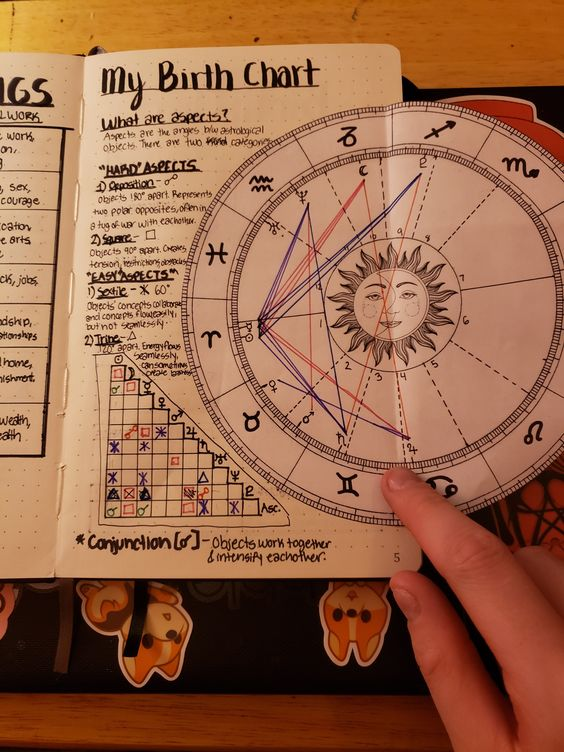 GS
LWORK
work,
on,
g
sex,
courage
cation,
arts
ck, jobs,
dship,
tionships
home,
nishment
wealth,
ealth
My Birth Chart
What are aspects?
Aspects are the angles b/w astrological
objects. There are two categories
"HARD" ASPECTS
1) Opposition - ☍
objects 180° apart. Represents
two polar opposites, often in
a tug of war with eachother.
2) Square - □
Objects 90° apart. Creates
tension, restrictions, obstacles
"EASY ASPECTS"
1) Sextile - ⚹ 60°
Objects' concepts collaborate
and concepts flow easily,
but not seamlessly.
2) Trine - △
120° apart. Energy flows
seamlessly,
can sometimes
create
Asc.
* Conjunction [☌] - Objects work together
& intensify eachother.
5
♑ ♐ ♏ ♒ ♓ ♈ ♉ ♊ ♋ ♌
1
2
3
4
5
6
7
8
9